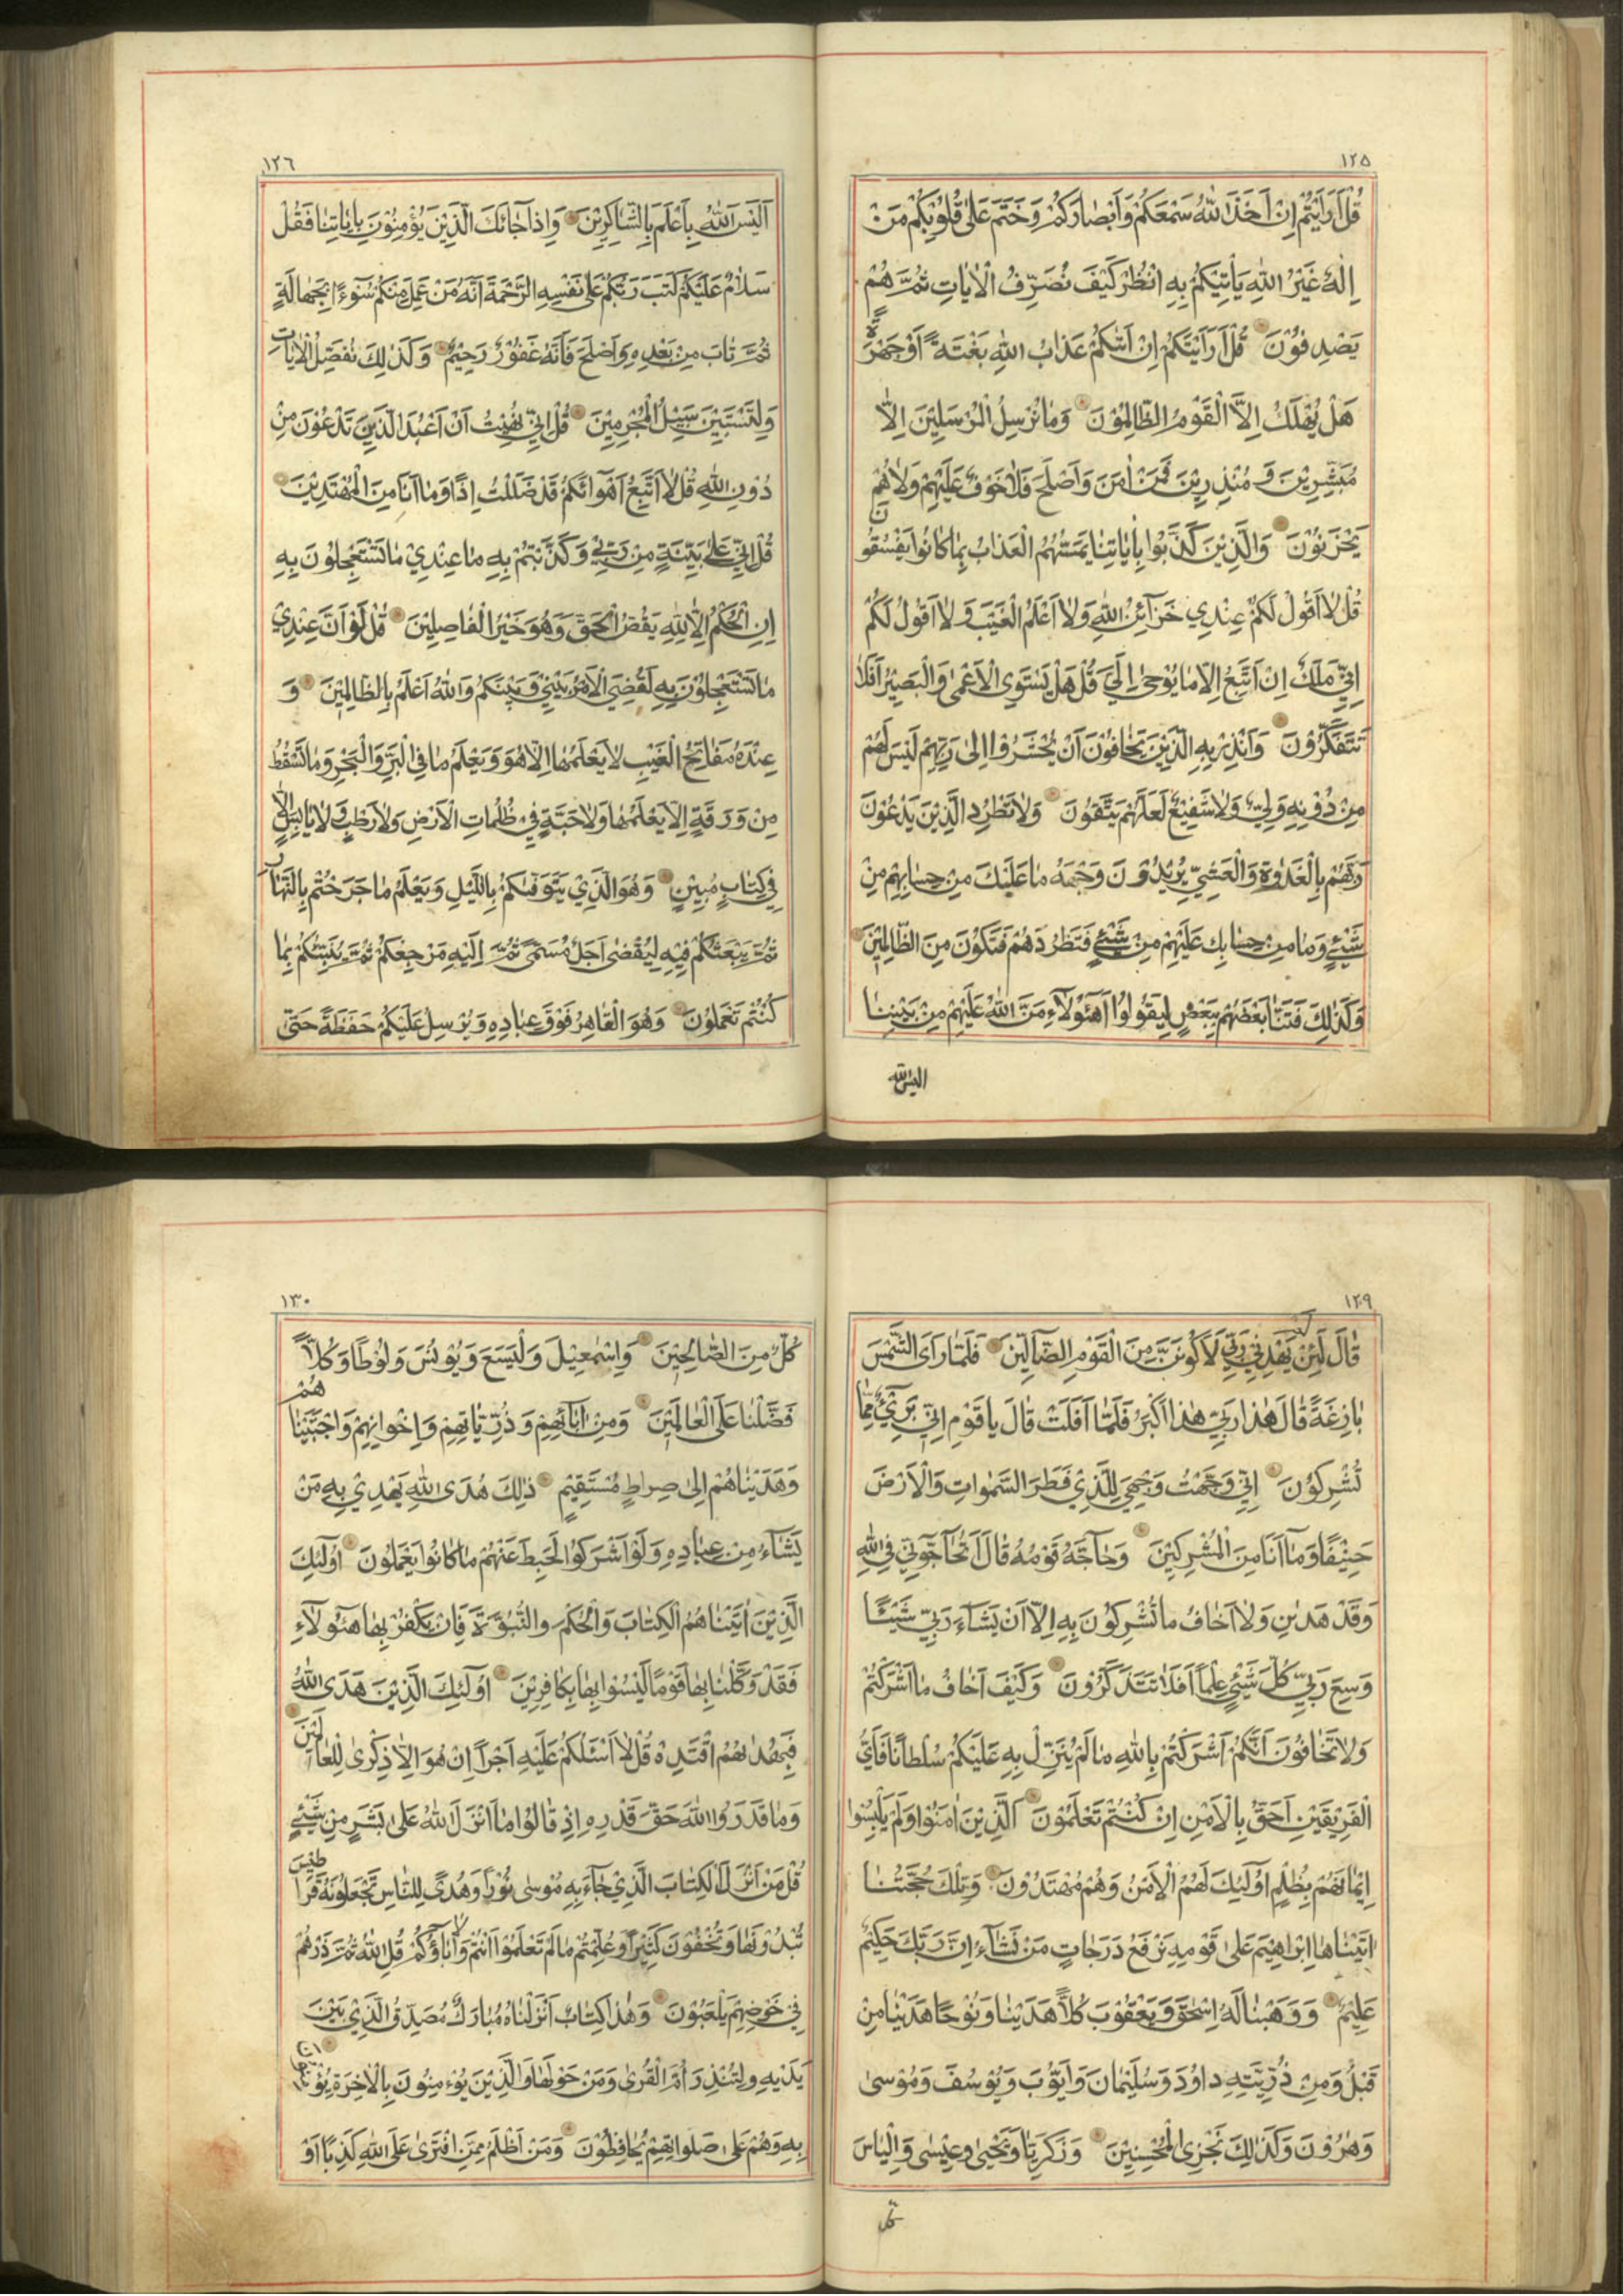 ١٢٥
قُلْ اَرَاَيْتُمْ اِنْ اَخَذَ اللّٰهُ سَمْعَكُمْ وَاَبْصَارَكُمْ وَخَتَمَ عَلٰى قُلُوْبِكُمْ مَنْ
اِلٰهٌ غَيْرُ اللّٰهِ يَاْتِيْكُمْ بِهِ اُنْظُرْ كَيْفَ نُصَرِّفُ الْاٰيَاتِ ثُمَّ هُمْ
يَصْدِفُوْنَ قُلْ اَرَاَيْتَكُمْ اِنْ اَتٰىكُمْ عَذَابُ اللّٰهِ بَغْتَةً اَوْ جَهْرَةً
هَلْ يُهْلَكُ اِلَّا الْقَوْمُ الظَّالِمُوْنَ وَمَا نُرْسِلُ الْمُرْسَلِيْنَ اِلَّا
مُبَشِّرِيْنَ وَ مُنْذِرِيْنَ فَمَنْ اٰمَنَ وَاَصْلَحَ فَلَا خَوْفٌ عَلَيْهِمْ وَلَا هُمْ
يَحْزَنُوْنَ وَالَّذِيْنَ كَذَّبُوْا بِاٰيَاتِنَا يَمَسُّهُمُ الْعَذَابُ بِمَا كَانُوْا يَفْسُقُوْنَ
قُلْ لَا اَقُوْلُ لَكُمْ عِنْدِي خَزَآئِنُ اللّٰهِ وَلَا اَعْلَمُ الْغَيْبَ وَلَا اَقُوْلُ لَكُمْ
اِنِّي مَلَكٌ اِنْ اَتَّبِعُ اِلَّا مَا يُوْحٰى اِلَيَّ قُلْ هَلْ يَسْتَوِي الْاَعْمٰى وَالْبَصِيْرُ اَفَلَا
تَتَفَكَّرُوْنَ وَاَنْذِرْ بِهِ الَّذِيْنَ يَخَافُوْنَ اَنْ يُحْشَرُوْا اِلٰى رَبِّهِمْ لَيْسَ لَهُمْ
مِنْ دُوْنِهِ وَلِيٌّ وَلَا شَفِيْعٌ لَعَلَّهُمْ يَتَّقُوْنَ وَلَا تَطْرُدِ الَّذِيْنَ يَدْعُوْنَ
رَبَّهُمْ بِالْغَدٰوةِ وَالْعَشِيِّ يُرِيْدُوْنَ وَجْهَهُ مَا عَلَيْكَ مِنْ حِسَابِهِمْ مِنْ
شَيْئٍ وَمَا مِنْ حِسَابِكَ عَلَيْهِمْ مِنْ شَيْئٍ فَتَطْرُدَهُمْ فَتَكُوْنَ مِنَ الظَّالِمِيْنَ
وَكَذٰلِكَ فَتَنَّا بَعْضَهُمْ بِبَعْضٍ لِيَقُوْلُوْا اَهٰٓؤُلَآءِ مَنَّ اللّٰهُ عَلَيْهِمْ مِنْ بَيْنِنَا
اليس الله
١٢٦
اَلَيْسَ اللّٰهُ بِاَعْلَمَ بِالشَّاكِرِيْنَ وَاِذَا جَائَكَ الَّذِيْنَ يُؤْمِنُوْنَ بِاٰيَاتِنَا فَقُلْ
سَلَامٌ عَلَيْكُمْ كَتَبَ رَبُّكُمْ عَلٰى نَفْسِهِ الرَّحْمَةَ اَنَّهُ مَنْ عَمِلَ مِنْكُمْ سُوْءًا بِجَهَالَةٍ
ثُمَّ تَابَ مِنْ بَعْدِهِ وَاَصْلَحَ فَاَنَّهُ غَفُوْرٌ رَحِيْمٌ وَكَذٰلِكَ نُفَصِّلُ الْاٰيَاتِ
وَلِتَسْتَبِيْنَ سَبِيْلُ الْمُجْرِمِيْنَ قُلْ اِنِّي نُهِيْتُ اَنْ اَعْبُدَ الَّذِيْنَ تَدْعُوْنَ مِنْ
دُوْنِ اللّٰهِ قُلْ لَا اَتَّبِعُ اَهْوَآئَكُمْ قَدْ ضَلَلْتُ اِذًا وَمَا اَنَا مِنَ الْمُهْتَدِيْنَ
قُلْ اِنِّي عَلٰى بَيِّنَةٍ مِنْ رَبِّي وَكَذَّبْتُمْ بِهِ مَا عِنْدِيْ مَا تَسْتَعْجِلُوْنَ بِهِ
اِنِ الْحُكْمُ اِلَّا لِلّٰهِ يَقُصُّ الْحَقَّ وَهُوَ خَيْرُ الْفَاصِلِيْنَ قُلْ لَوْ اَنَّ عِنْدِيْ
مَا تَسْتَعْجِلُوْنَ بِهِ لَقُضِيَ الْاَمْرُ بَيْنِيْ وَبَيْنَكُمْ وَاللّٰهُ اَعْلَمُ بِالظَّالِمِيْنَ وَ
عِنْدَهُ مَفَاتِحُ الْغَيْبِ لَا يَعْلَمُهَا اِلَّا هُوَ وَيَعْلَمُ مَا فِي الْبَرِّ وَالْبَحْرِ وَمَا تَسْقُطُ
مِنْ وَرَقَةٍ اِلَّا يَعْلَمُهَا وَلَا حَبَّةٍ فِي ظُلُمَاتِ الْاَرْضِ وَلَا رَطْبٍ وَلَا يَابِسٍ اِلَّا
فِي كِتَابٍ مُبِيْنٍ وَهُوَ الَّذِيْ يَتَوَفّٰىكُمْ بِاللَّيْلِ وَيَعْلَمُ مَا جَرَحْتُمْ بِالنَّهَارِ
ثُمَّ يَبْعَثُكُمْ فِيْهِ لِيُقْضٰى اَجَلٌ مُسَمًّى ثُمَّ اِلَيْهِ مَرْجِعُكُمْ ثُمَّ يُنَبِّئُكُمْ بِمَا
كُنْتُمْ تَعْمَلُوْنَ وَهُوَ الْقَاهِرُ فَوْقَ عِبَادِهِ وَيُرْسِلُ عَلَيْكُمْ حَفَظَةً حَتّٰى
١٢٩
قَالَ لَئِنْ لَمْ يَهْدِنِي رَبِّي لَاَكُوْنَنَّ مِنَ الْقَوْمِ الضَّآلِّيْنَ فَلَمَّا رَاَى الشَّمْسَ
بَازِغَةً قَالَ هٰذَا رَبِّي هٰذَا اَكْبَرُ فَلَمَّا اَفَلَتْ قَالَ يَا قَوْمِ اِنِّي بَرِيْئٌ مِمَّا
تُشْرِكُوْنَ اِنِّي وَجَّهْتُ وَجْهِيَ لِلَّذِيْ فَطَرَ السَّمٰوَاتِ وَالْاَرْضَ
حَنِيْفًا وَمَا اَنَا مِنَ الْمُشْرِكِيْنَ وَحَآجَّهُ قَوْمُهُ قَالَ اَتُحَآجُّوْنِّي فِي اللّٰهِ
وَقَدْ هَدٰينِ وَلَا اَخَافُ مَا تُشْرِكُوْنَ بِهِ اِلَّا اَنْ يَشَآءَ رَبِّي شَيْئًا
وَسِعَ رَبِّي كُلَّ شَيْئٍ عِلْمًا اَفَلَا تَتَذَكَّرُوْنَ وَكَيْفَ اَخَافُ مَا اَشْرَكْتُمْ
وَلَا تَخَافُوْنَ اَنَّكُمْ اَشْرَكْتُمْ بِاللّٰهِ مَا لَمْ يُنَزِّلْ بِهِ عَلَيْكُمْ سُلْطَانًا فَاَيُّ
الْفَرِيْقَيْنِ اَحَقُّ بِالْاَمْنِ اِنْ كُنْتُمْ تَعْلَمُوْنَ اَلَّذِيْنَ اٰمَنُوْا وَلَمْ يَلْبِسُوْا
اِيْمَانَهُمْ بِظُلْمٍ اُولٰٓئِكَ لَهُمُ الْاَمْنُ وَهُمْ مُهْتَدُوْنَ وَتِلْكَ حُجَّتُنَا
اٰتَيْنَاهَا اِبْرَاهِيْمَ عَلٰى قَوْمِهِ نَرْفَعُ دَرَجَاتٍ مَنْ نَشَآءُ اِنَّ رَبَّكَ حَكِيْمٌ
عَلِيْمٌ وَوَهَبْنَا لَهُ اِسْحٰقَ وَيَعْقُوْبَ كُلًّا هَدَيْنَا وَنُوْحًا هَدَيْنَا مِنْ
قَبْلُ وَمِنْ ذُرِّيَّتِهِ دَاوُدَ وَسُلَيْمَانَ وَاَيُّوْبَ وَيُوْسُفَ وَمُوْسٰى
وَهٰرُوْنَ وَكَذٰلِكَ نَجْزِي الْمُحْسِنِيْنَ وَزَكَرِيَّا وَيَحْيٰى وَعِيْسٰى وَاِلْيَاسَ
كلّ
١٣٠
كُلٌّ مِنَ الصَّالِحِيْنَ وَاِسْمٰعِيْلَ وَالْيَسَعَ وَيُوْنُسَ وَلُوْطًا وَكُلًّا
فَضَّلْنَا عَلَى الْعَالَمِيْنَ وَمِنْ اٰبَآئِهِمْ وَذُرِّيَّاتِهِمْ وَاِخْوَانِهِمْ وَاجْتَبَيْنَاهُمْ
وَهَدَيْنَاهُمْ اِلٰى صِرَاطٍ مُسْتَقِيْمٍ ذٰلِكَ هُدَى اللّٰهِ يَهْدِيْ بِهِ مَنْ
يَشَآءُ مِنْ عِبَادِهِ وَلَوْ اَشْرَكُوْا لَحَبِطَ عَنْهُمْ مَا كَانُوْا يَعْمَلُوْنَ اُولٰٓئِكَ
الَّذِيْنَ اٰتَيْنَاهُمُ الْكِتَابَ وَالْحُكْمَ وَالنُّبُوَّةَ فَاِنْ يَكْفُرْ بِهَا هٰٓؤُلَآءِ
فَقَدْ وَكَّلْنَا بِهَا قَوْمًا لَيْسُوْا بِهَا بِكَافِرِيْنَ اُولٰٓئِكَ الَّذِيْنَ هَدَى اللّٰهُ
فَبِهُدٰيهُمُ اقْتَدِهْ قُلْ لَا اَسْئَلُكُمْ عَلَيْهِ اَجْرًا اِنْ هُوَ اِلَّا ذِكْرٰى لِلْعَالَمِيْنَ
وَمَا قَدَرُوا اللّٰهَ حَقَّ قَدْرِهِ اِذْ قَالُوْا مَا اَنْزَلَ اللّٰهُ عَلٰى بَشَرٍ مِنْ شَيْئٍ
قُلْ مَنْ اَنْزَلَ الْكِتَابَ الَّذِيْ جَآءَ بِهِ مُوْسٰى نُوْرًا وَهُدًى لِلنَّاسِ تَجْعَلُوْنَهُ قَرَاطِيْسَ
تُبْدُوْنَهَا وَتُخْفُوْنَ كَثِيْرًا وَعُلِّمْتُمْ مَا لَمْ تَعْلَمُوْا اَنْتُمْ وَلَا اٰبَاؤُكُمْ قُلِ اللّٰهُ ثُمَّ ذَرْهُمْ
فِي خَوْضِهِمْ يَلْعَبُوْنَ وَهٰذَا كِتَابٌ اَنْزَلْنَاهُ مُبَارَكٌ مُصَدِّقُ الَّذِيْ بَيْنَ
يَدَيْهِ وَلِتُنْذِرَ اُمَّ الْقُرٰى وَمَنْ حَوْلَهَا وَالَّذِيْنَ يُؤْمِنُوْنَ بِالْاٰخِرَةِ يُؤْمِنُوْنَ
بِهِ وَهُمْ عَلٰى صَلَوَاتِهِمْ يُحَافِظُوْنَ وَمَنْ اَظْلَمُ مِمَّنِ افْتَرٰى عَلَى اللّٰهِ كَذِبًا اَوْ